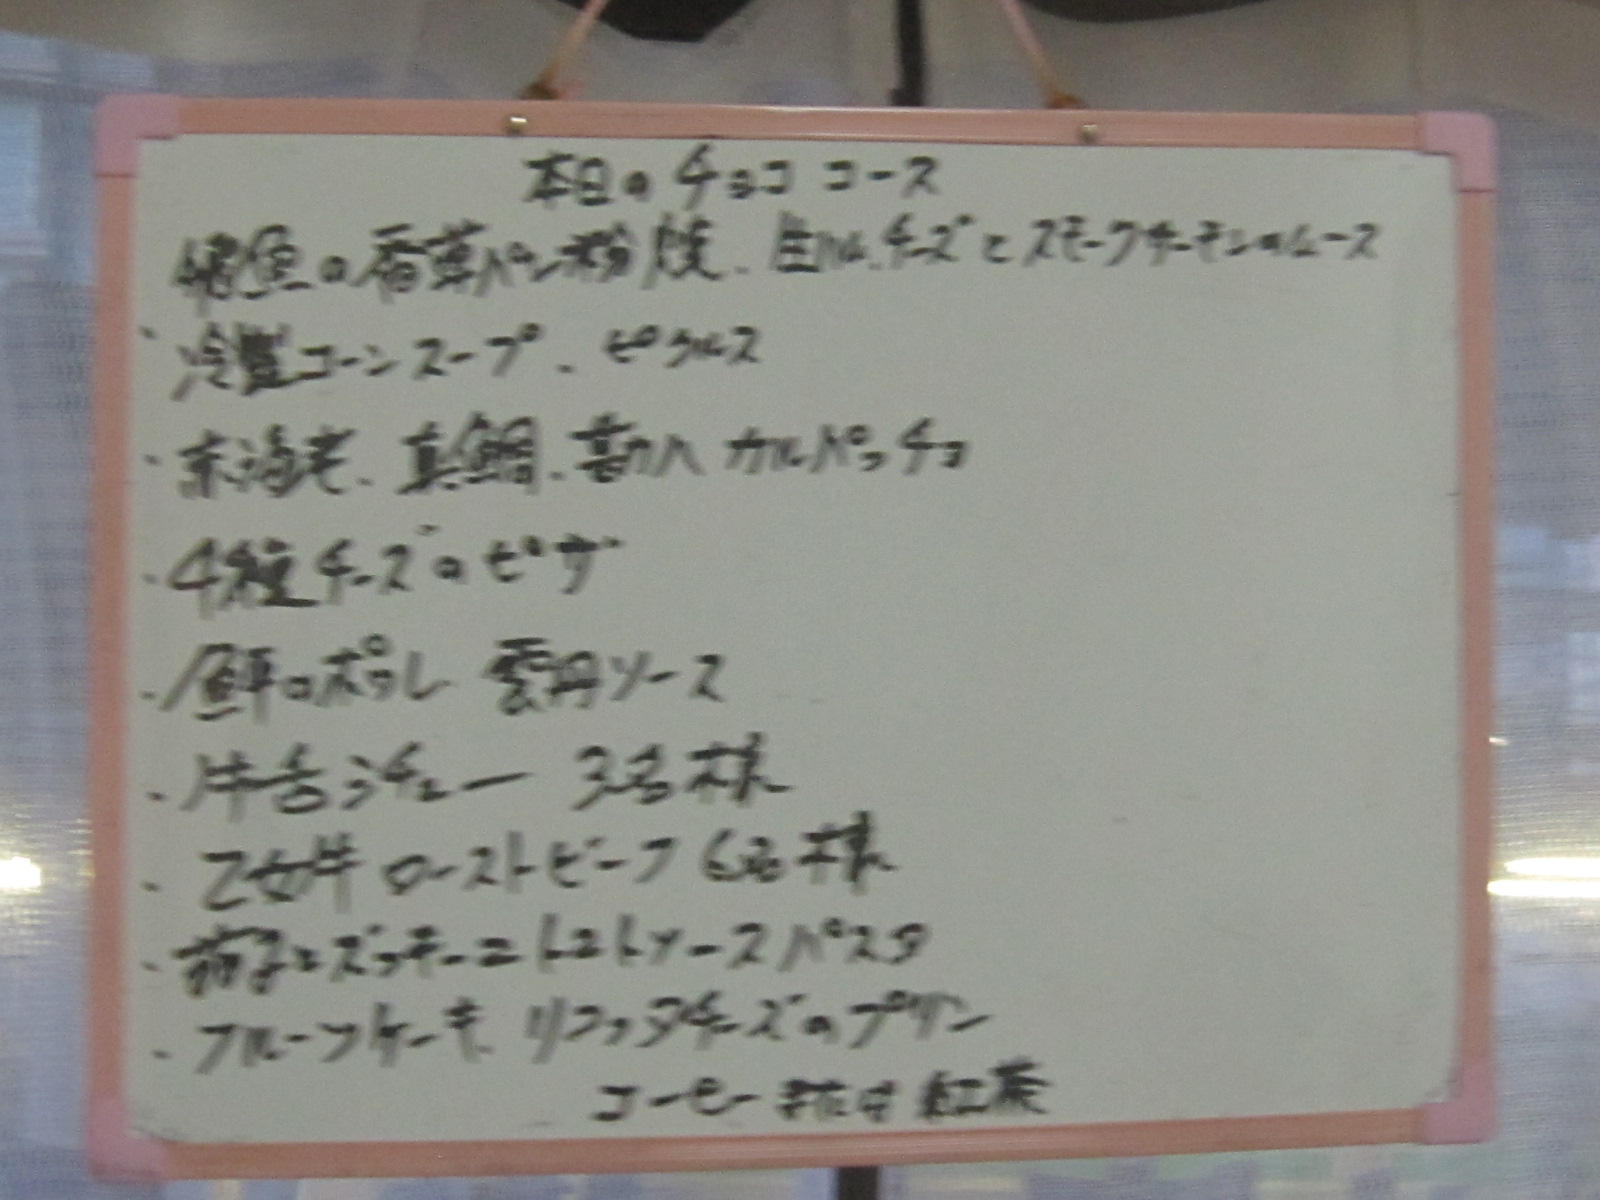 本日のチョココース
魚の香草パン粉焼、生ハム、チーズとスモークサーモンのムース
・冷製コーンスープ、ピクルス
・赤海老、真鯛、カルパッチョ
・4種チーズのピザ
・鮮のポワレ 雲丹ソース
・牛舌シチュー 3名様
・乙女牛 ローストビーフ 6名様
・茄子とズッキーニトマトソースパスタ
・フルーツケーキ、リコッタチーズのプリン
コーヒーまたは紅茶